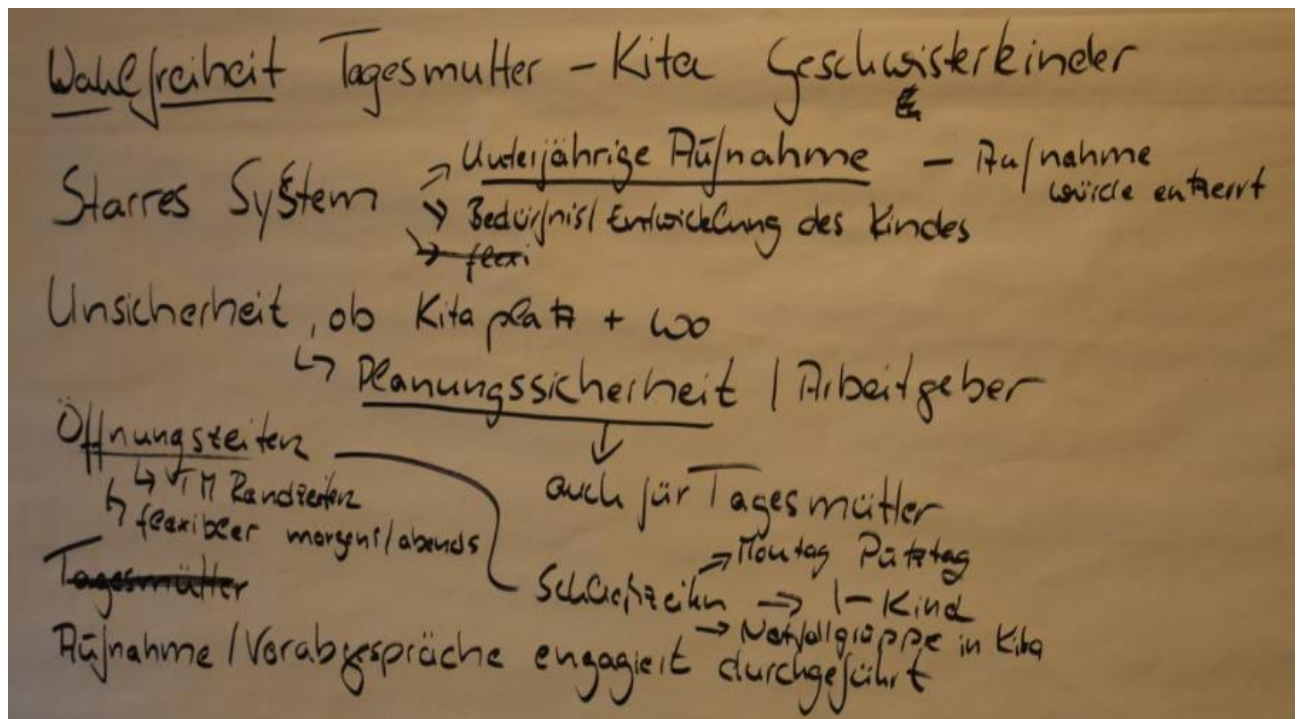 Wahlfreiheit Tagesmutter – Kita Geschwisterkinder
Starres System → Unterjährige Aufnahme – Aufnahme
würde entzerrt
→ Bedürfnis/Entwicklung des Kindes
→ flexi
Unsicherheit, ob Kitaplatz + wo
↳ Planungssicherheit / Arbeitgeber
↓
auch für Tagesmütter
Öffnungszeiten
↳ TM Randzeiten
↳ flexibler morgens/abends
Tagesmütter
Schließzeiten → Montag Putztag
→ 1-Kind
→ Notfallgruppe in Kita
Aufnahme/Vorabgespräche engagiert durchgeführt